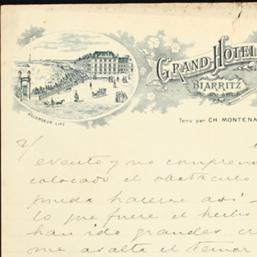 GRAND HOTEL
BIARRITZ
Tenu par CH. MONTENA
Y
evento y no compren
colocado el obstáculo
pueda hacerme así
lo que fuere el hecho
han ido grandes
me asalta el temor